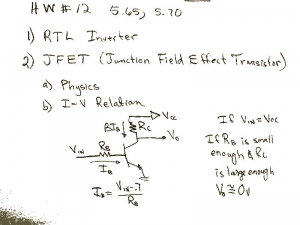 HW #12 5.65, 5.70
1) RTL Inverter
2) JFET (Junction Field Effect Transistor)
a) Physics
b) I-V Relation
Vcc
βIB
RC
Vo
VIN
RB
IB
IB = VIN-.7 / RB
If VIN = Vcc
If RB is small
enough & RC
is large enough
Vo ≅ 0V